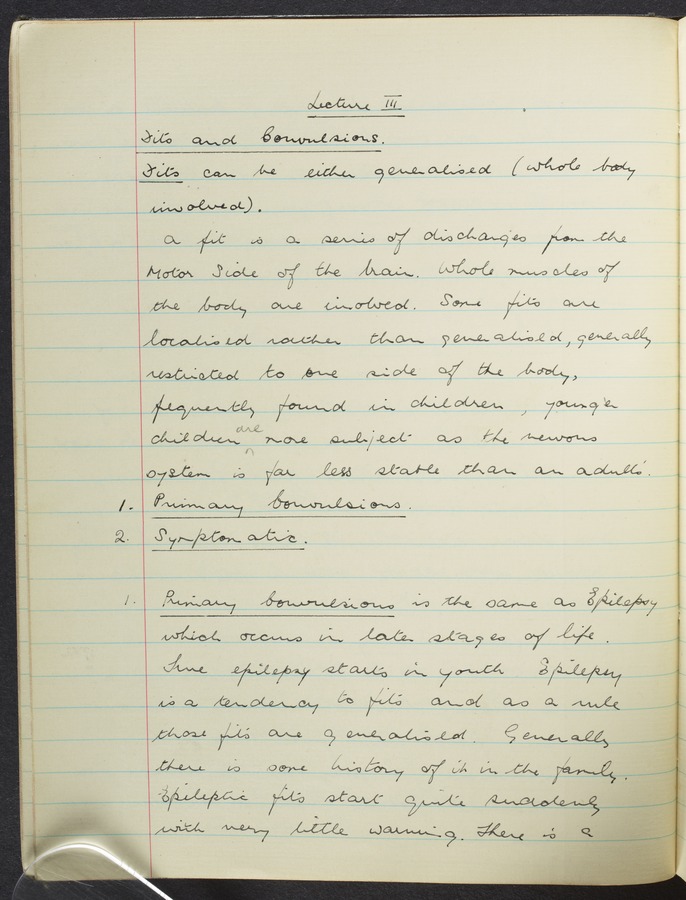 Lecture III
Fits and Convulsions.
Fits can be either generalised (whole body
involved).
a fit is a series of discharges from the
Motor Side of the brain. Whole muscles of
the body are involved. Some fits are
localised rather than generalised, generally
restricted to one side of the body,
frequently found in children, younger
children are more subject as the nervous
system is far less stable than an adults'.
1. Primary Convulsions.
2. Symptomatic.
1. Primary Convulsions is the same as Epilepsy
which occurs in later stages of life.
True epilepsy starts in youth Epilepsy
is a tendency to fits and as a rule
those fits are generalised. Generally
there is some history of it in the family.
Epileptic fits start quite suddenly
with very little warning. There is a